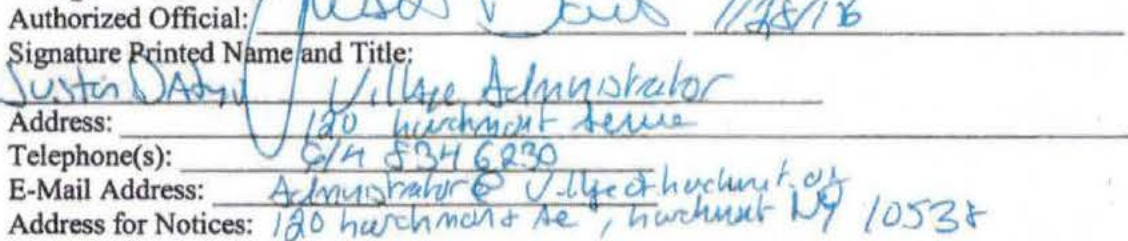 Authorized Official: 1/28/16
Signature Printed Name and Title:
Justin Village Administrator
Address: 120 Larchmont Avenue
Telephone(s): 914 834 6230
E-Mail Address: Administrator@
Address for Notices: 120 Larchmont Ave, Larchmont NY 10538